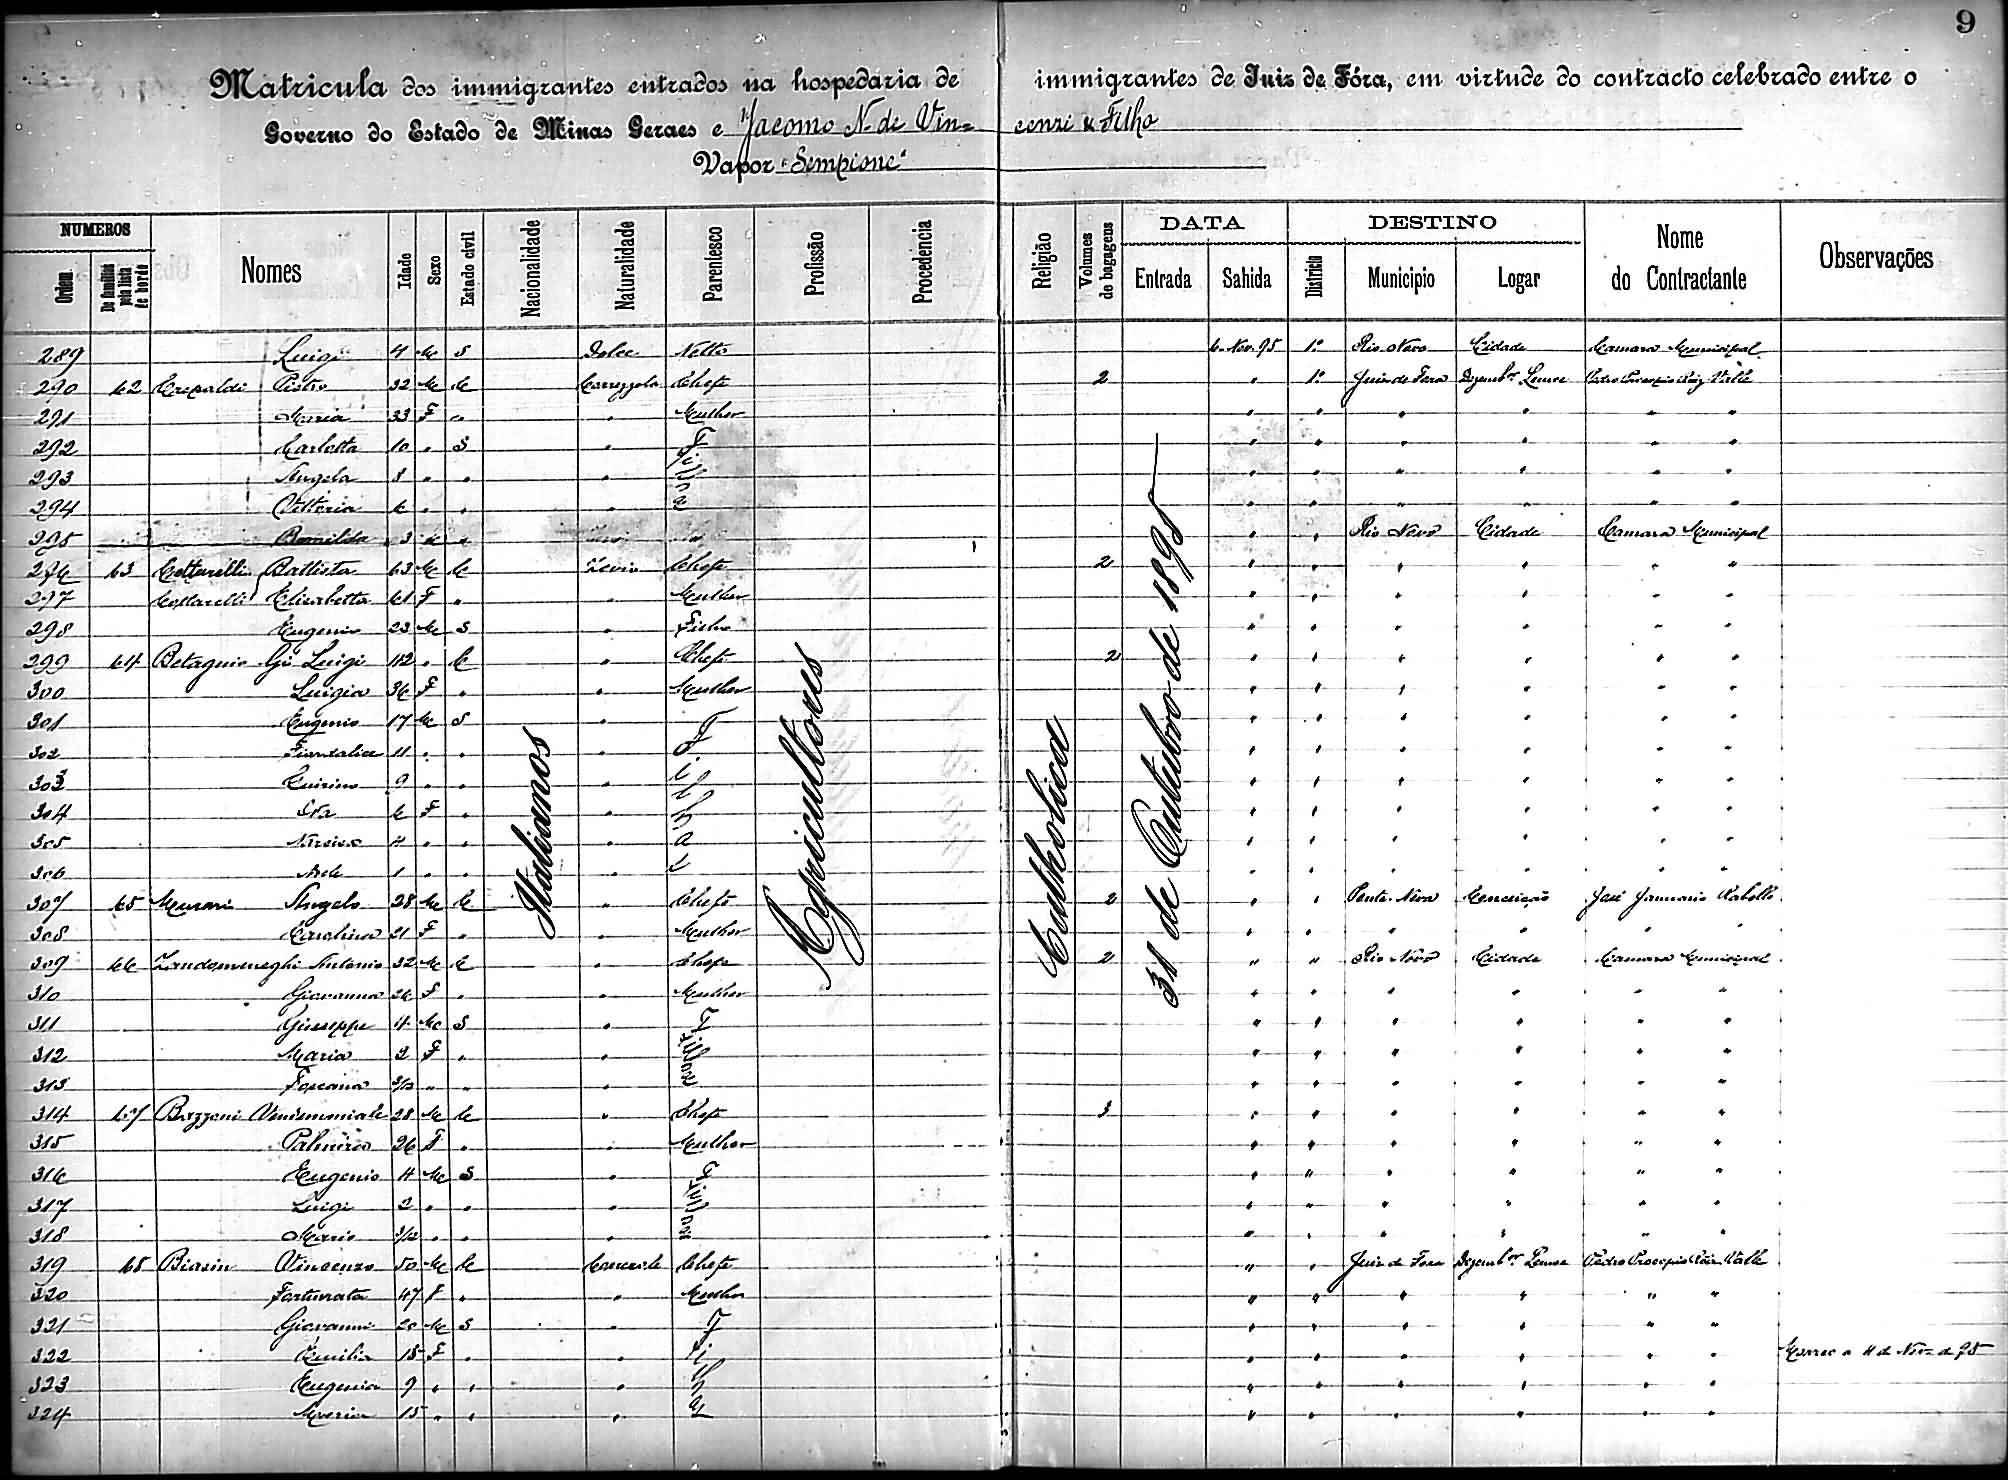 9
Matricula dos immigrantes entrados na hospedaria de immigrantes de Juiz de Fóra, em virtude do contracto celebrado entre o
Governo do Estado de Minas Geraes e Jacomo N. de Vincenzi & Filho
Vapor "Sempione"
NUMEROS DATA DESTINO
Ordem De familia pela lista de bordo Nomes Idade Sexo Estado civil Nacionalidade Naturalidade Parentesco Profissão Procedencia Religião Volumes de bagagens Entrada Sahida Districto Municipio Logar Nome do Contractante Observações
Italianos Agricultores Catholica 31 de Outubro de 1895
289 Luigi 4 M S Dolce Netto 6 Nov. 95 1º Rio Novo Cidade Camara Municipal
290 62 Pietro 32 M C Chefe 2 " 1º Juiz de Fora Dezembor Lemos Valle
291 Maria 33 F " " Mulher " " " " " "
292 Carlotta 10 " S " " " " " " "
293 Angela 8 " " " " " " " " "
294 Vittoria 6 " " " " " " " " "
295 3 " " " Rio Novo Cidade Camara Municipal
296 63 Cottarelli Battista 63 M C Zevio Chefe 2 " " " " " "
297 Cottarelli Elisabetta 61 F " " Mulher " " " " " "
298 Eugenio 23 M S " Filho " " " " " "
299 64 Betagnio Gio Luigi 42 " C " Chefe 2 " " " " " "
300 Luigia 36 F " " Mulher " " " " " "
301 Eugenio 17 M S " Filhos " " " " " "
302 11 " " " " " " " " "
303 Quirino 9 " " " " " " " " "
304 6 F " " " " " " " "
305 4 " " " " " " " " "
306 1 " " " " " " " " "
307 65 Murari Angelo 28 M C " Chefe 2 " " Ponte Nova Conceição José Januario Rabello
308 Carolina 21 F " " Mulher " " " " " "
309 66 Zandomeneghi Antonio 32 M C " Chefe 2 " " Rio Novo Cidade Camara Municipal
310 Giovanna 26 F " " Mulher " " " " " "
311 Giuseppe 4 M S " Filhos " " " " " "
312 Maria 2 F " " " " " " " "
313 " " " " " " " " "
314 67 Bozzoni Vendemmiale 28 M C " Chefe 3 " " " " " "
315 Palmira 26 F " " Mulher " " " " " "
316 Eugenio 4 M S " Filhos " " " " " "
317 Luigi 2 " " " " " " " " "
318 Mario " " " " " " " " "
319 68 Biasin Vincenzo 50 M C Chefe " " Juiz de Fora Dezembor Lemos Pedro Procopio Valle
320 Fortunata 47 F " " Mulher " " " " " "
321 Giovanni 20 M S " Filhos " " " " " "
322 Emilia 18 F " " " " " " " " Morreo a 4 de Nov. de 95
323 Eugenia 9 " " " " " " " " "
324 15 " " " " " " " " "